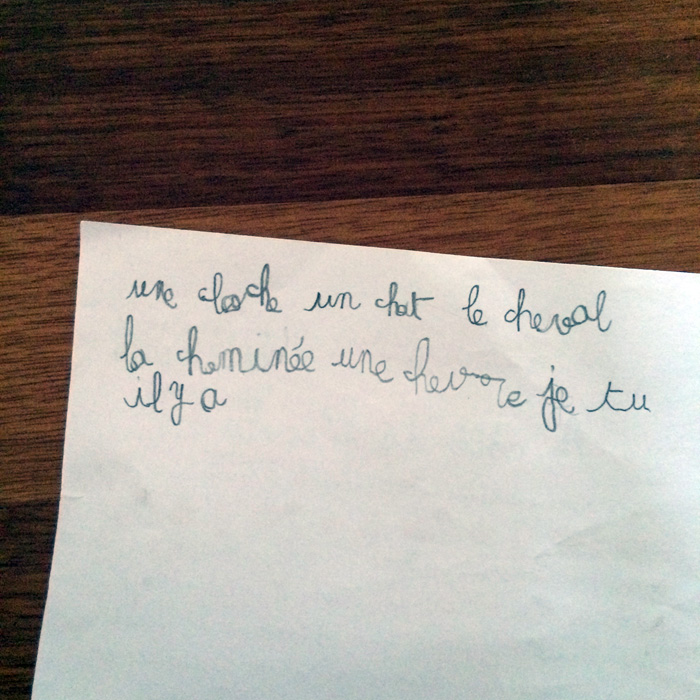 une cloche un chat le cheval
la cheminée une chevre je tu
il y a